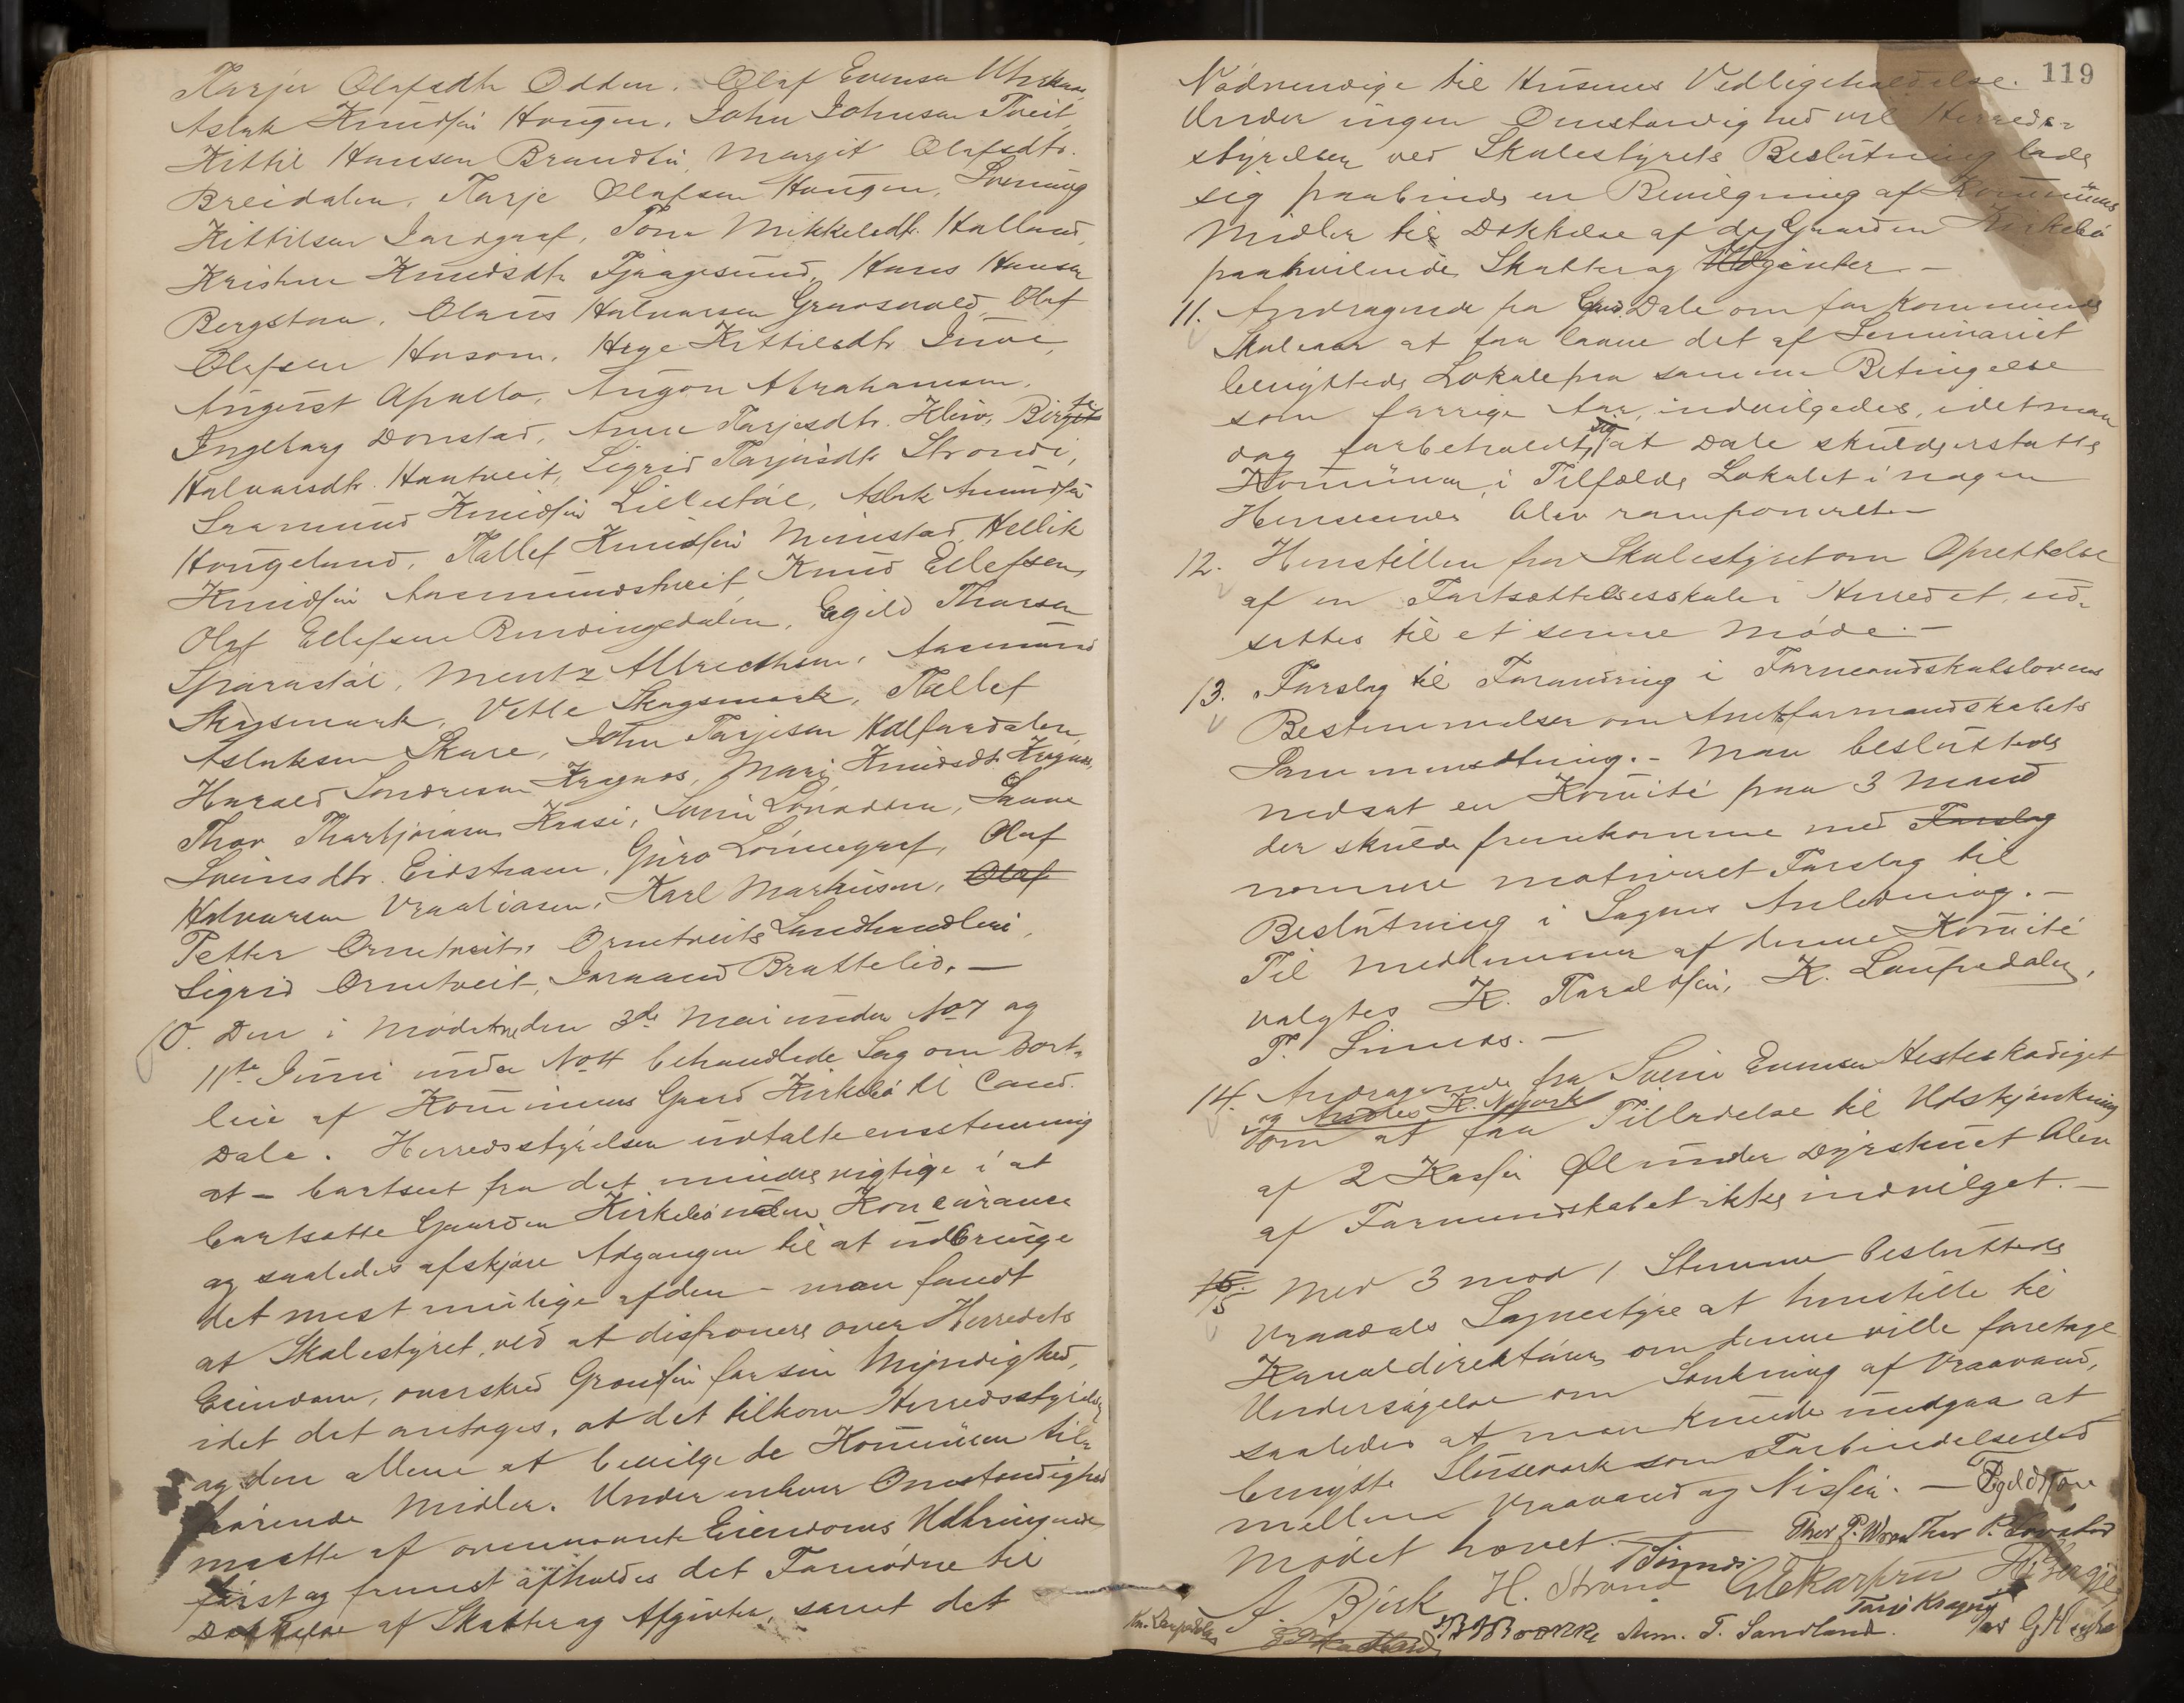 Tarjer Olafsdtr Odden. Olaf Evensen
Aslak Knudsen Haugen. John Johnsen Tveit,
Kittil Hansen Brandsø, Margit Olafsdtr.
Breidalen, Tarje Olafsen Haugen, Sveinung
Kittilsen Jordgraf, Tone Mikkelsdtr. Halland,
Kristine Knudsdtr Fjaagesund, Hans Hansen
Bergstua. Olaus Halvorsen Graosvold, Olaf
Olafsen Husom. Hege Kittilsdtr
August Apollo, August Abrahamsen.
Ingeborg Donstad, Anne Tarjesdtr. Kleiv, Birgit
Halvorsdtr. Hautveit, Sigrid Tarjesdtr Strondi,
Saamund Knudsen Lillestøl, Aslak Amundsen
Haugelund, Tallef Knudsen Mimstad, Hellik
Knudsen Aasmundstveit, Knud Ellefsen,
Olaf Ellefsen Rundingsdalen, Egild Thorsen
Sparastøl, Mentz Albrecthsen, Aasmund
Skogsmark, Vetle Skogsmark, Tallef
Aslaksen Skare, John Tarjesen Kalfardalen,
Harald Sondresen Kragnos, Mari Knudsdtr. Kragnos,
Thor Thorbjørnsen Kraasi, Svein Lønodden, Saave
Sveinsdtr. Eidstraum, Guro Lønnegraf, Olaf
Halvorsen Vraaliosen, Karl Markusen, Olaf
Petter Ormtveit, Ormtveits Landhandleri,
Sigrid Ormtveit, Joraand Brattelid. —
10. Den i Mødet den 3de Mai under No 7 og
11te Juni under No 4 behandlede Sag om Bort-
leie af Kommunens Gaard Kirkebø til Cand.
Dale. Herredsstyrelsen udtalte enstemmig
at – bortseet fra det mindre rigtige i at
bortsætte Gaarden Kirkebø uden Koncurance
og saaledes afskjære Adgangen til at udbringe
det mest mulige af den – man fandt
at Skolestyret, ved at disponere over Herredets
Eiendom, overskred Grændsen for sin Myndighed,
idet det antages, at det tilkom Herredsstyrelsen
og den allene at bevilge de Kommunen til-
hørende Midler. Under enhver Omstændighed
maatte af ovennævnte Eiendoms Udbringende
først og fremst afholdes det Fornødne til
Dækkelse af Skatter og Afgivter, samt det
119
Nødvendige til Husenes Vedligeholdelse.
Under ingen Omstændighed vil Herreds-
styrelsen ved Skolestyrets Beslutning lade
sig paabinde en Bevilgning af Kommunens
Midler til Dækkelse af de Gaarden Kirkebø
paahvilende Skatter og Udgivter –
11. Andragende fra Cand. Dale om for kommende
Skoleaar at faa laane det af Seminariet
benyttede Lokale paa samme Betingelse
som forrige Aar, indvilgedes, idet man
dog forbeholdt sig at Dale skulde erstatte
Kommunen, i Tilfælde Lokalet i nogen
Henseende blev ramponeret –
12. Henstillen fra Skolestyret om Oprettelse
af en Fortsættelsesskole i Herredet, ud-
sættes til et senere Møde. –
13. Forslag til Forandring i Formandskabslovens
Bestemmelser om Amtsformandskabets
Sammensætning. – Man besluttede
nedsat en Komité paa 3 Mand
der skulde fremkomme med Forslag
nærmere motiveret Forslag til
Beslutning i Sagens Anledning. –
Til Medlemmer af denne Komité
valgtes K. Taraldsen, K. Laupedalen,
T. Sinnes. –
14. Andragende fra Svein Evensen Hesteskodiget
og Andres K. Nymark
om at faa Tilladelse til Udskjænkning
af 2 Kasser Øl under Dyrskuet blev
af Formandskabet ikke indvilget. –
15 Med 3 mod 1 Stemme besluttede
Vraadals Sognestyre at henstille til
Kanaldirektøren om denne ville foretage
Undersøgelse om Sænkning af Vraavand,
saaledes at man kunde undgaa at
benytte Sluseværk som Forbindelsesled
mellem Vraavand og Nisser. –
Mødet hævet. T Sinnes.
A. Bjork H. Strand
Kn. Laupedalen Aam. T. Sandland. Tarje Kragnes